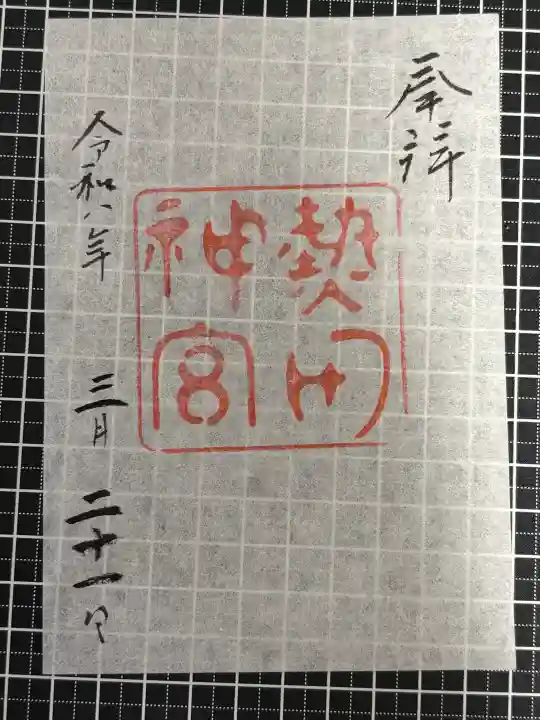 奉拝
熱田
神宮
令和八年
三月
二十一日